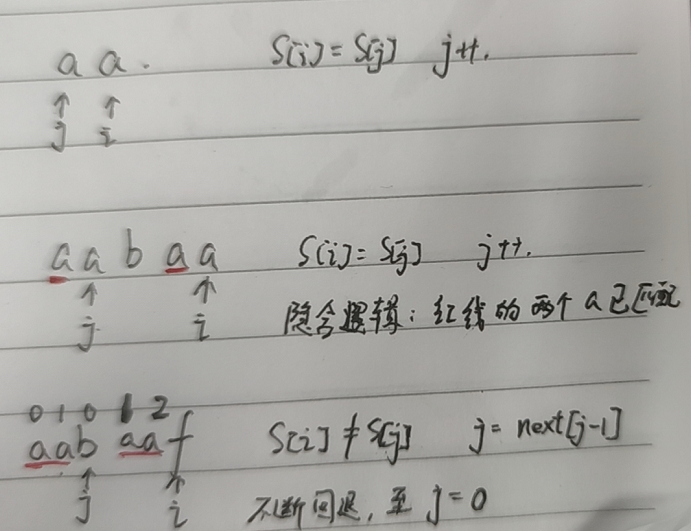 a a . S[i] = S[j] j++.
j i
a a b a a S[i] = S[j] j++.
j i 隐含逻辑：红线的两个a已匹配
0 1 0 1 2
a a b a a f S[i] ≠ S[j] j = next[j-1]
j i 不断回退，至 j = 0